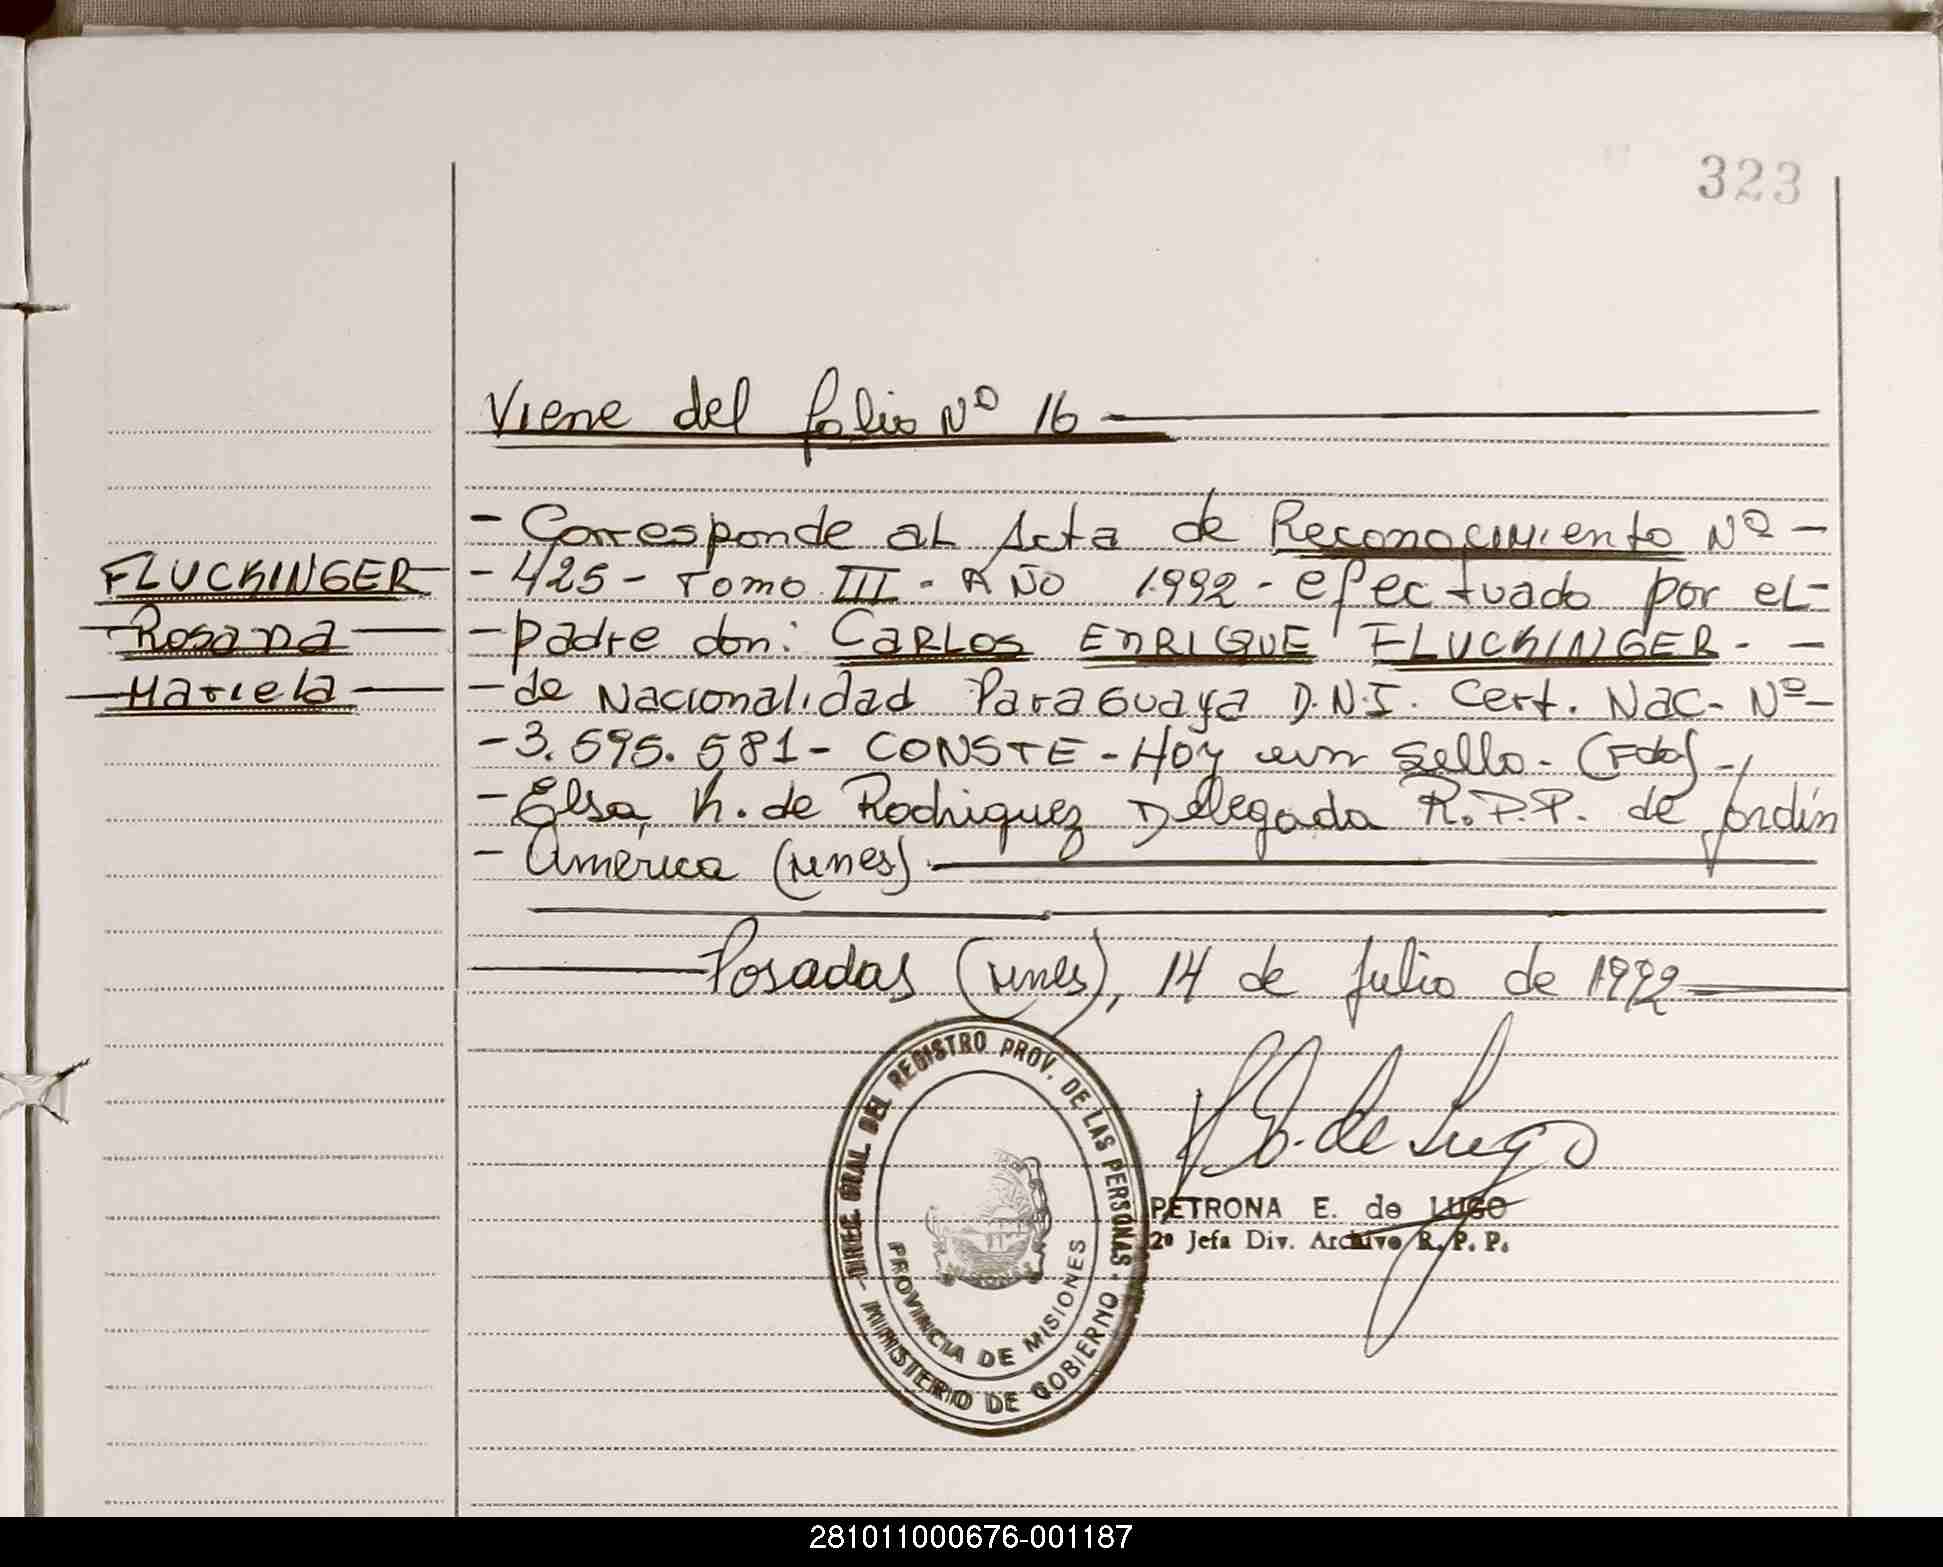 323
Viene del folio Nº 16
- Corresponde al Acta de Reconocimiento Nº -
FLUCKINGER
- 425 - Tomo III - AÑO 1992 - efectuado por el -
Rosana
- padre don: CARLOS ENRIQUE FLUCKINGER - -
Mariela
- de Nacionalidad Paraguaya D.N.I. Cert. Nac. Nº -
- 3.595.581 - CONSTE - Hoy un sello - (Fdo) -
- Elsa K. de Rodriguez Delegada R.P.P. de Jardín
- América (Mnes)
Posadas (Mnes), 14 de Julio de 1992
P.E. de Lugo
PETRONA E. de LUGO
2ª Jefa Div. Archivo R. P. P.
DIREC. GRAL. DEL REGISTRO PROV. DE LAS PERSONAS - MINISTERIO DE GOBIERNO -
PROVINCIA DE MISIONES
281011000676-001187